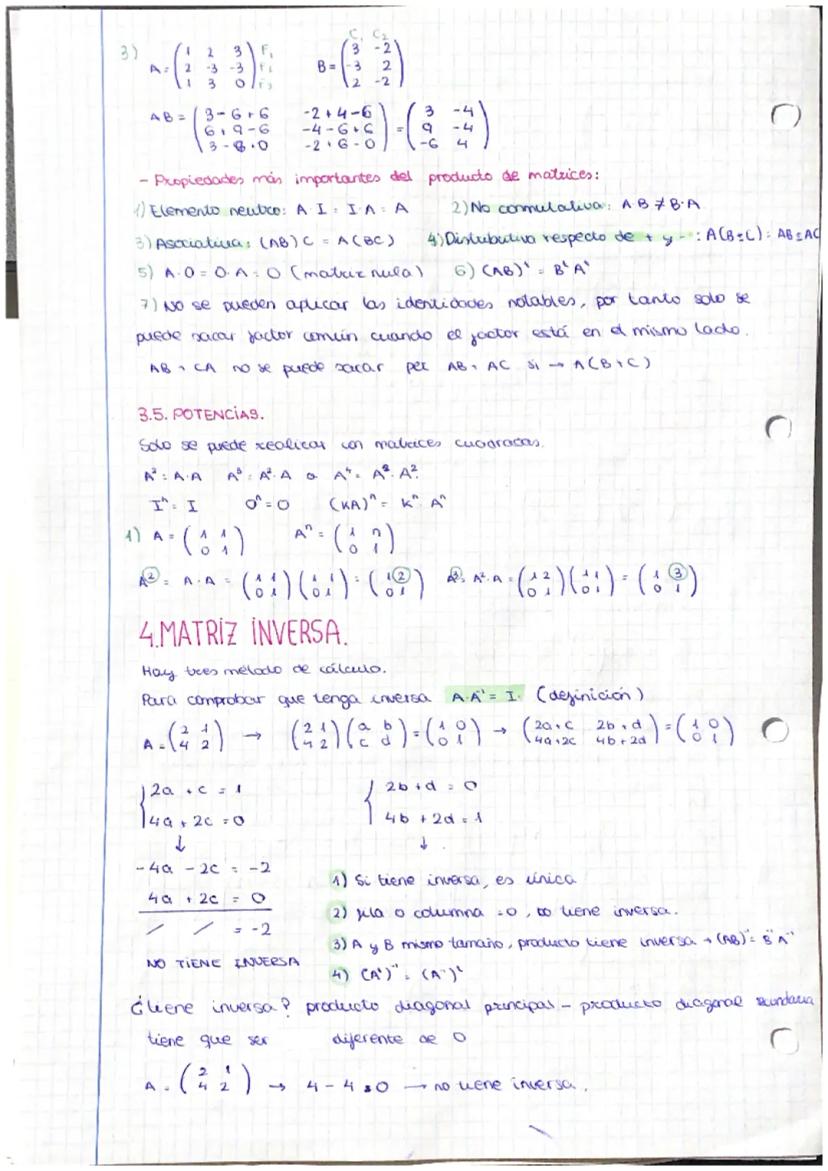 C₁ C₂
3) A = ( 1 2 3 ; 2 -3 -3 ; 1 3 0 ) F₁ F₂ F₃ B = ( 3 -2 ; -3 2 ; 2 -2 )
AB = ( 3-6+6 -2+4-6 ; 6+9-6 -4-6+6 ; 3-9+0 -2+6-0 ) = ( 3 -4 ; 9 -4 ; -6 4 )
- Propiedades más importantes del producto de matrices:
1) Elemento neutro: A·I = I·A = A 2) No conmutativa: A·B ≠ B·A
3) Asociativa: (AB)C = A(BC) 4) Distributiva respecto de + y - : A(B±C) = AB±AC
5) A·O = O·A = O (matriz nula) 6) (AB)ᵗ = Bᵗ Aᵗ
7) No se pueden aplicar las identidades notables, por tanto solo se
puede sacar factor común cuando el factor está en el mismo lado.
AB + CA no se puede sacar per AB + AC si → A(B+C)
3.5. POTENCIAS.
Solo se puede realizar con matrices cuadradas.
A² = A·A A³ = A²·A o A⁴ = A²·A²
Iⁿ = I Oⁿ = O (KA)ⁿ = Kⁿ·Aⁿ
1) A = ( 1 1 ; 0 1 ) Aⁿ = ( 1 n ; 0 1 )
A² = A·A = ( 1 1 ; 0 1 ) ( 1 1 ; 0 1 ) = ( 1 2 ; 0 1 ) A³ = A²·A = ( 1 2 ; 0 1 ) ( 1 1 ; 0 1 ) = ( 1 3 ; 0 1 )
4.MATRIZ INVERSA.
Hay tres método de cálculo.
Para comprobar que tenga inversa A·A⁻¹ = I. (definición)
A = ( 2 1 ; 4 2 ) → ( 2 1 ; 4 2 ) ( a b ; c d ) = ( 1 0 ; 0 1 ) → ( 2a+c 2b+d ; 4a+2c 4b+2d ) = ( 1 0 ; 0 1 )
{ 2a + c = 1 { 2b + d = 0
4a + 2c = 0 4b + 2d = 1
↓ ↓
-4a - 2c = -2
4a + 2c = 0
/ / = -2
NO TIENE INVERSA
1) Si tiene inversa, es única
2) fila o columna = 0, no tiene inversa.
3) A y B mismo tamaño, producto tiene inversa → (AB)⁻¹ = B⁻¹A⁻¹
4) (Aᵗ)⁻¹ = (A⁻¹)ᵗ
¿tiene inversa? producto diagonal principal - producto diagonal secundaria
tiene que ser diferente de 0
A = ( 2 1 ; 4 2 ) → 4 - 4 = 0 → no tiene inversa.